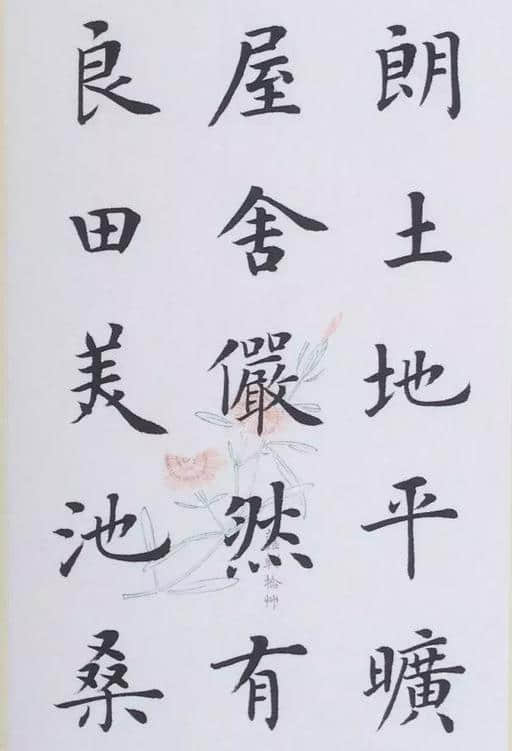 朗土地平曠
屋舍儼然有
良田美池桑